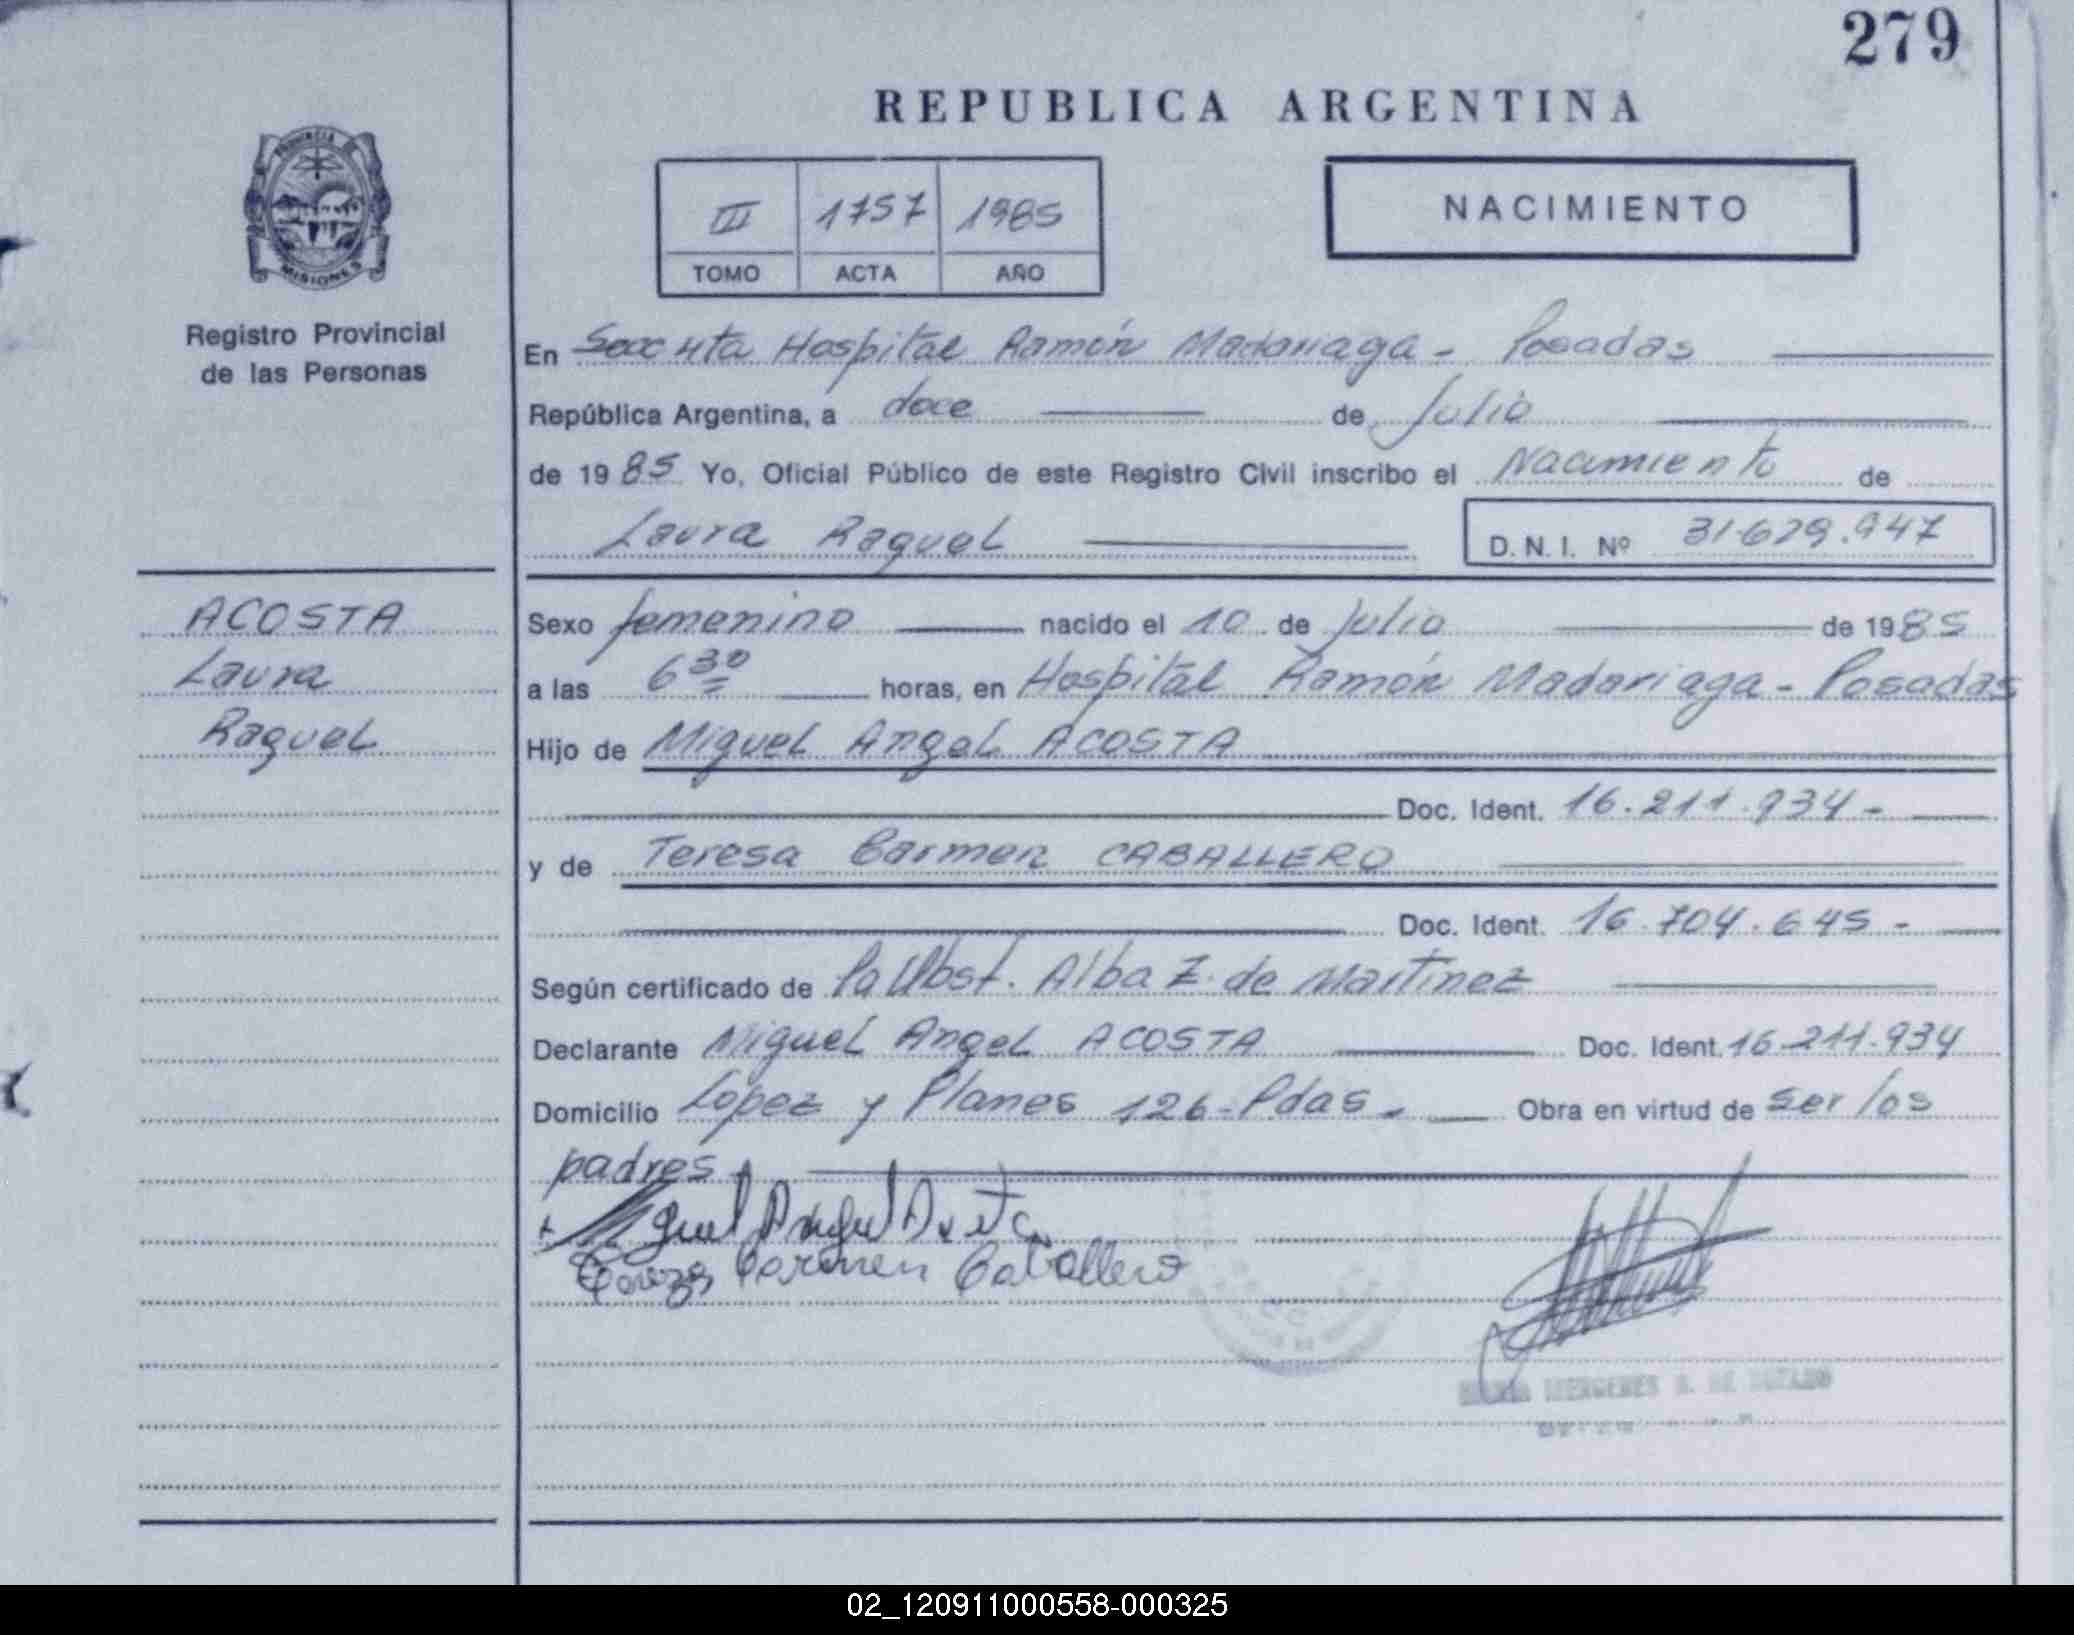 279
REPUBLICA ARGENTINA
PROVINCIA DE
MISIONES
III 1757 1985
TOMO ACTA AÑO
NACIMIENTO
Registro Provincial
de las Personas
En Hospital Ramón Madariaga - Posadas
República Argentina, a doce de Julio
de 1985 Yo, Oficial Público de este Registro Civil inscribo el Nacimiento de
Laura Raquel D.N.I. Nº 31.629.947
ACOSTA
Laura
Raquel
Sexo femenino nacido el 10 de Julio de 1985
a las 6 30 horas, en Hospital Ramón Madariaga - Posadas
Hijo de Miguel Angel ACOSTA
Doc. Ident. 16.211.934 -
y de Teresa Carmen CABALLERO
Doc. Ident. 16.704.645 -
Según certificado de Obst. Alba Z. de Martinez
Declarante Miguel Angel ACOSTA Doc. Ident. 16.211.934
Domicilio López y Planes 126 - Pdas - Obra en virtud de ser los
padres
Miguel Angel Acosta
Teresa Carmen Caballero
02_120911000558-000325